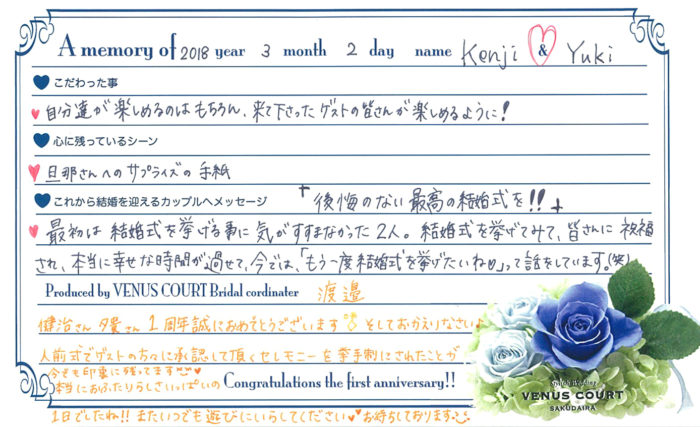 A memory of 2018 year 3 month 2 day name Kenji & Yuki
こだわった事
自分達が楽しめるのはもちろん、来て下さったゲストの皆さんが楽しめるように!
心に残っているシーン
旦那さんへのサプライズの手紙
これから結婚を迎えるカップルへメッセージ 「後悔のない最高の結婚式を!!」
最初は結婚式を挙げる事に気がすすまなかった2人。結婚式を挙げてみて、皆さんに祝福
され、本当に幸せな時間が過せて、今では、「もう一度結婚式を挙げたいね」って話をしています。(笑)
Produced by VENUS COURT Bridal cordinater 渡邉
健治さん 夕貴さん 1周年誠におめでとうございます そしておかえりなさい
人前式でゲストの方々に承認して頂くセレモニーを挙手制にされたことが
今でも印象に残ってます
本当におふたりらしさいっぱいの Congratulations the first anniversary!!
1日でしたね!! またいつでも遊びにいらしてください お待ちしております
VENUS COURT
SAKUDAIRA